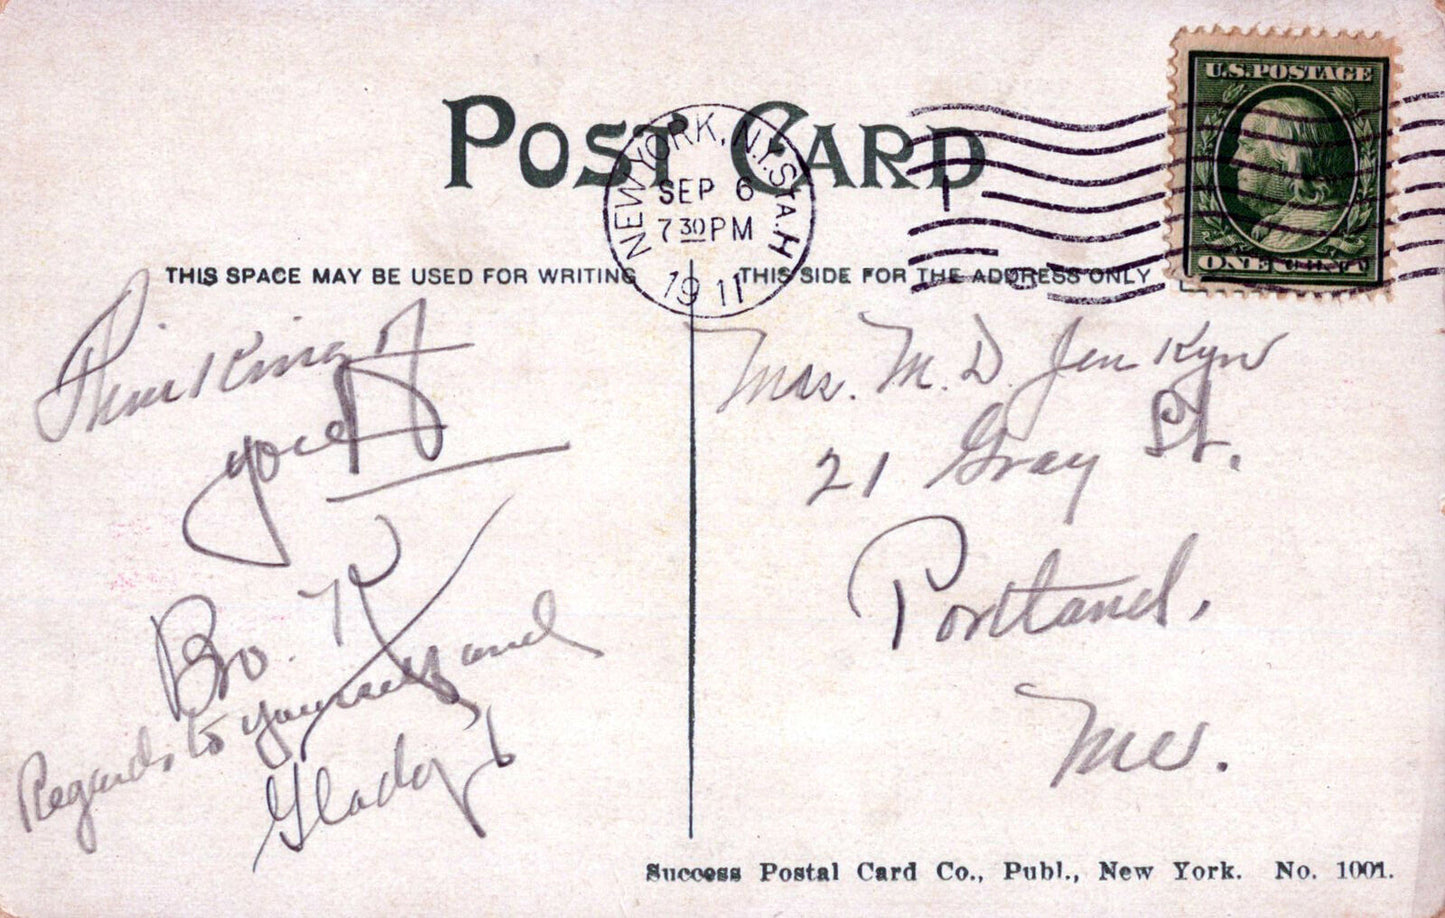 POST CARD
NEW YORK, N.Y. STA. H
SEP 6
7 30 PM
1911
U.S. POSTAGE
ONE CENT
THIS SPACE MAY BE USED FOR WRITING
THIS SIDE FOR THE ADDRESS ONLY
Thinking of
you
Bro. K
Regards to yourself and
Gladys
Mrs. M. D. Jenkyn
21 Gray St.
Portland,
Me.
Success Postal Card Co., Publ., New York. No. 1001.